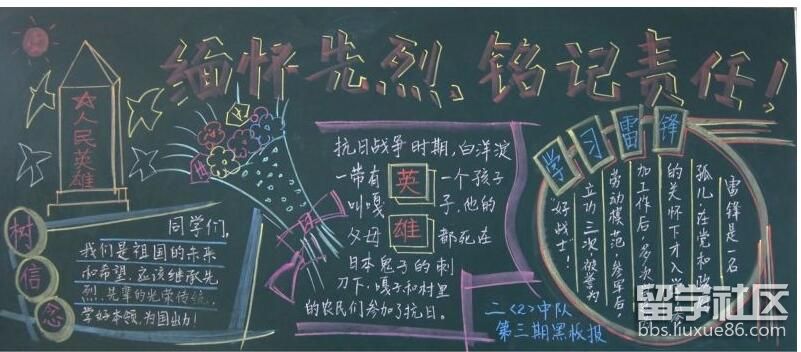 缅怀先烈、铭记责任！
人民英雄
树信念
同学们，
我们是祖国的未来
和希望，应该继承先
烈、先辈的光荣传统，
学好本领，为国出力！
抗日战争时期，白洋淀
一带有 一个孩子
叫嘎 子，他的
父母 都死在
英雄
日本鬼子的刺
刀下，嘎子和村里
的农民们参加了抗日。
学习雷锋
雷锋是一名
孤儿，在党和政
的关怀下才入学、参
加工作后，多次
劳动模范，参军后，
立功三次，被誉为
“好战士”！
二〈2〉中队
第三期黑板报
留学社区
bbs.liuxue86.com